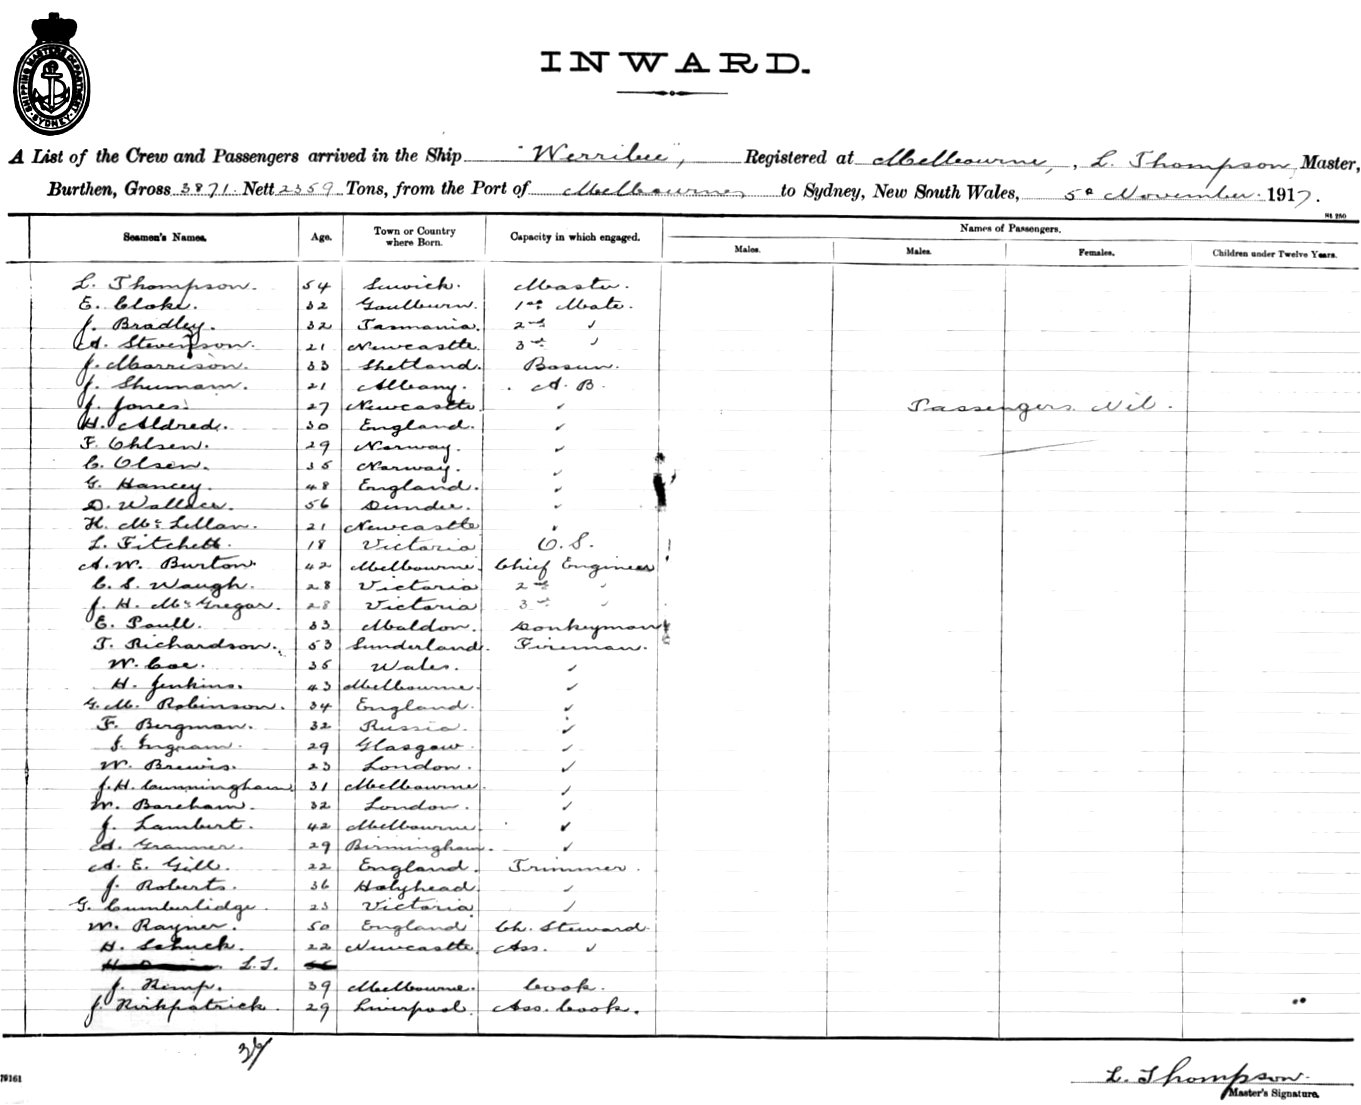 SHIPPING MASTERS DEPARTMENT SYDNEY
INWARD.
A List of the Crew and Passengers arrived in the Ship "Werribee", Registered at Melbourne, , L. Thompson, Master,
Burthen, Gross 3871 Nett 2359 Tons, from the Port of Melbourne, to Sydney, New South Wales, 5 November 1917.
St 250
Seamen's Names. Age. Town or Country where Born. Capacity in which engaged. Names of Passengers.
Males. Males. Females. Children under Twelve Years.
L. Thompson. 54 Lerwick. Master.
E. Cloke. 32 Goulburn. 1st Mate.
J. Bradley. 32 Tasmania. 2nd "
A. Stevenson. 21 Newcastle. 3rd "
J. Morrison. 33 Shetland. Bosun.
J. Shumann. 21 Albany. A. B.
J. Jones. 27 Newcastle. " Passengers Nil.
H. Aldred. 30 England. "
F. Ohlsen. 29 Norway. "
C. Olsen. 35 Norway. "
G. Hancey. 48 England. "
D. Wallace. 56 Dundee. "
H. McLellan. 21 Newcastle "
L. Fitchett. 18 Victoria O. S.
A. W. Burton. 42 Melbourne. Chief Engineer
C. S. Waugh. 28 Victoria 2nd "
J. H. McGregor. 28 Victoria 3rd "
E. Paull. 33 Maldon. Donkeyman
T. Richardson. 53 Sunderland. Fireman.
W. Coe. 35 Wales. "
H. Jenkins. 43 Melbourne. "
G. M. Robinson. 34 England. "
F. Bergman. 32 Russia. "
J. Ingram. 29 Glasgow. "
W. Brewis. 23 London. "
J. H. Cunningham 31 Melbourne "
W. Bareham. 32 London. "
J. Lambert. 42 Melbourne. "
A. Granner. 29 Birmingham. "
A. E. Gill. 22 England. Trimmer.
J. Roberts. 36 Holyhead. "
G. Cumberlidge. 23 Victoria "
W. Rayner. 50 England Ch. Steward.
H. Schuck. 22 Newcastle. Ass. "
L.T.
J. Kemp. 39 Melbourne. Cook.
J. Kirkpatrick. 29 Liverpool. Ass. Cook.
36
L. Thompson.
79161 Master's Signature.